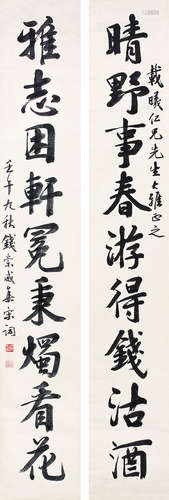 晴野事春游得錢沽酒
載曦仁兄先生大雅正之
雅志困軒冕秉燭看花
壬午九秋錢崇威集宋詞